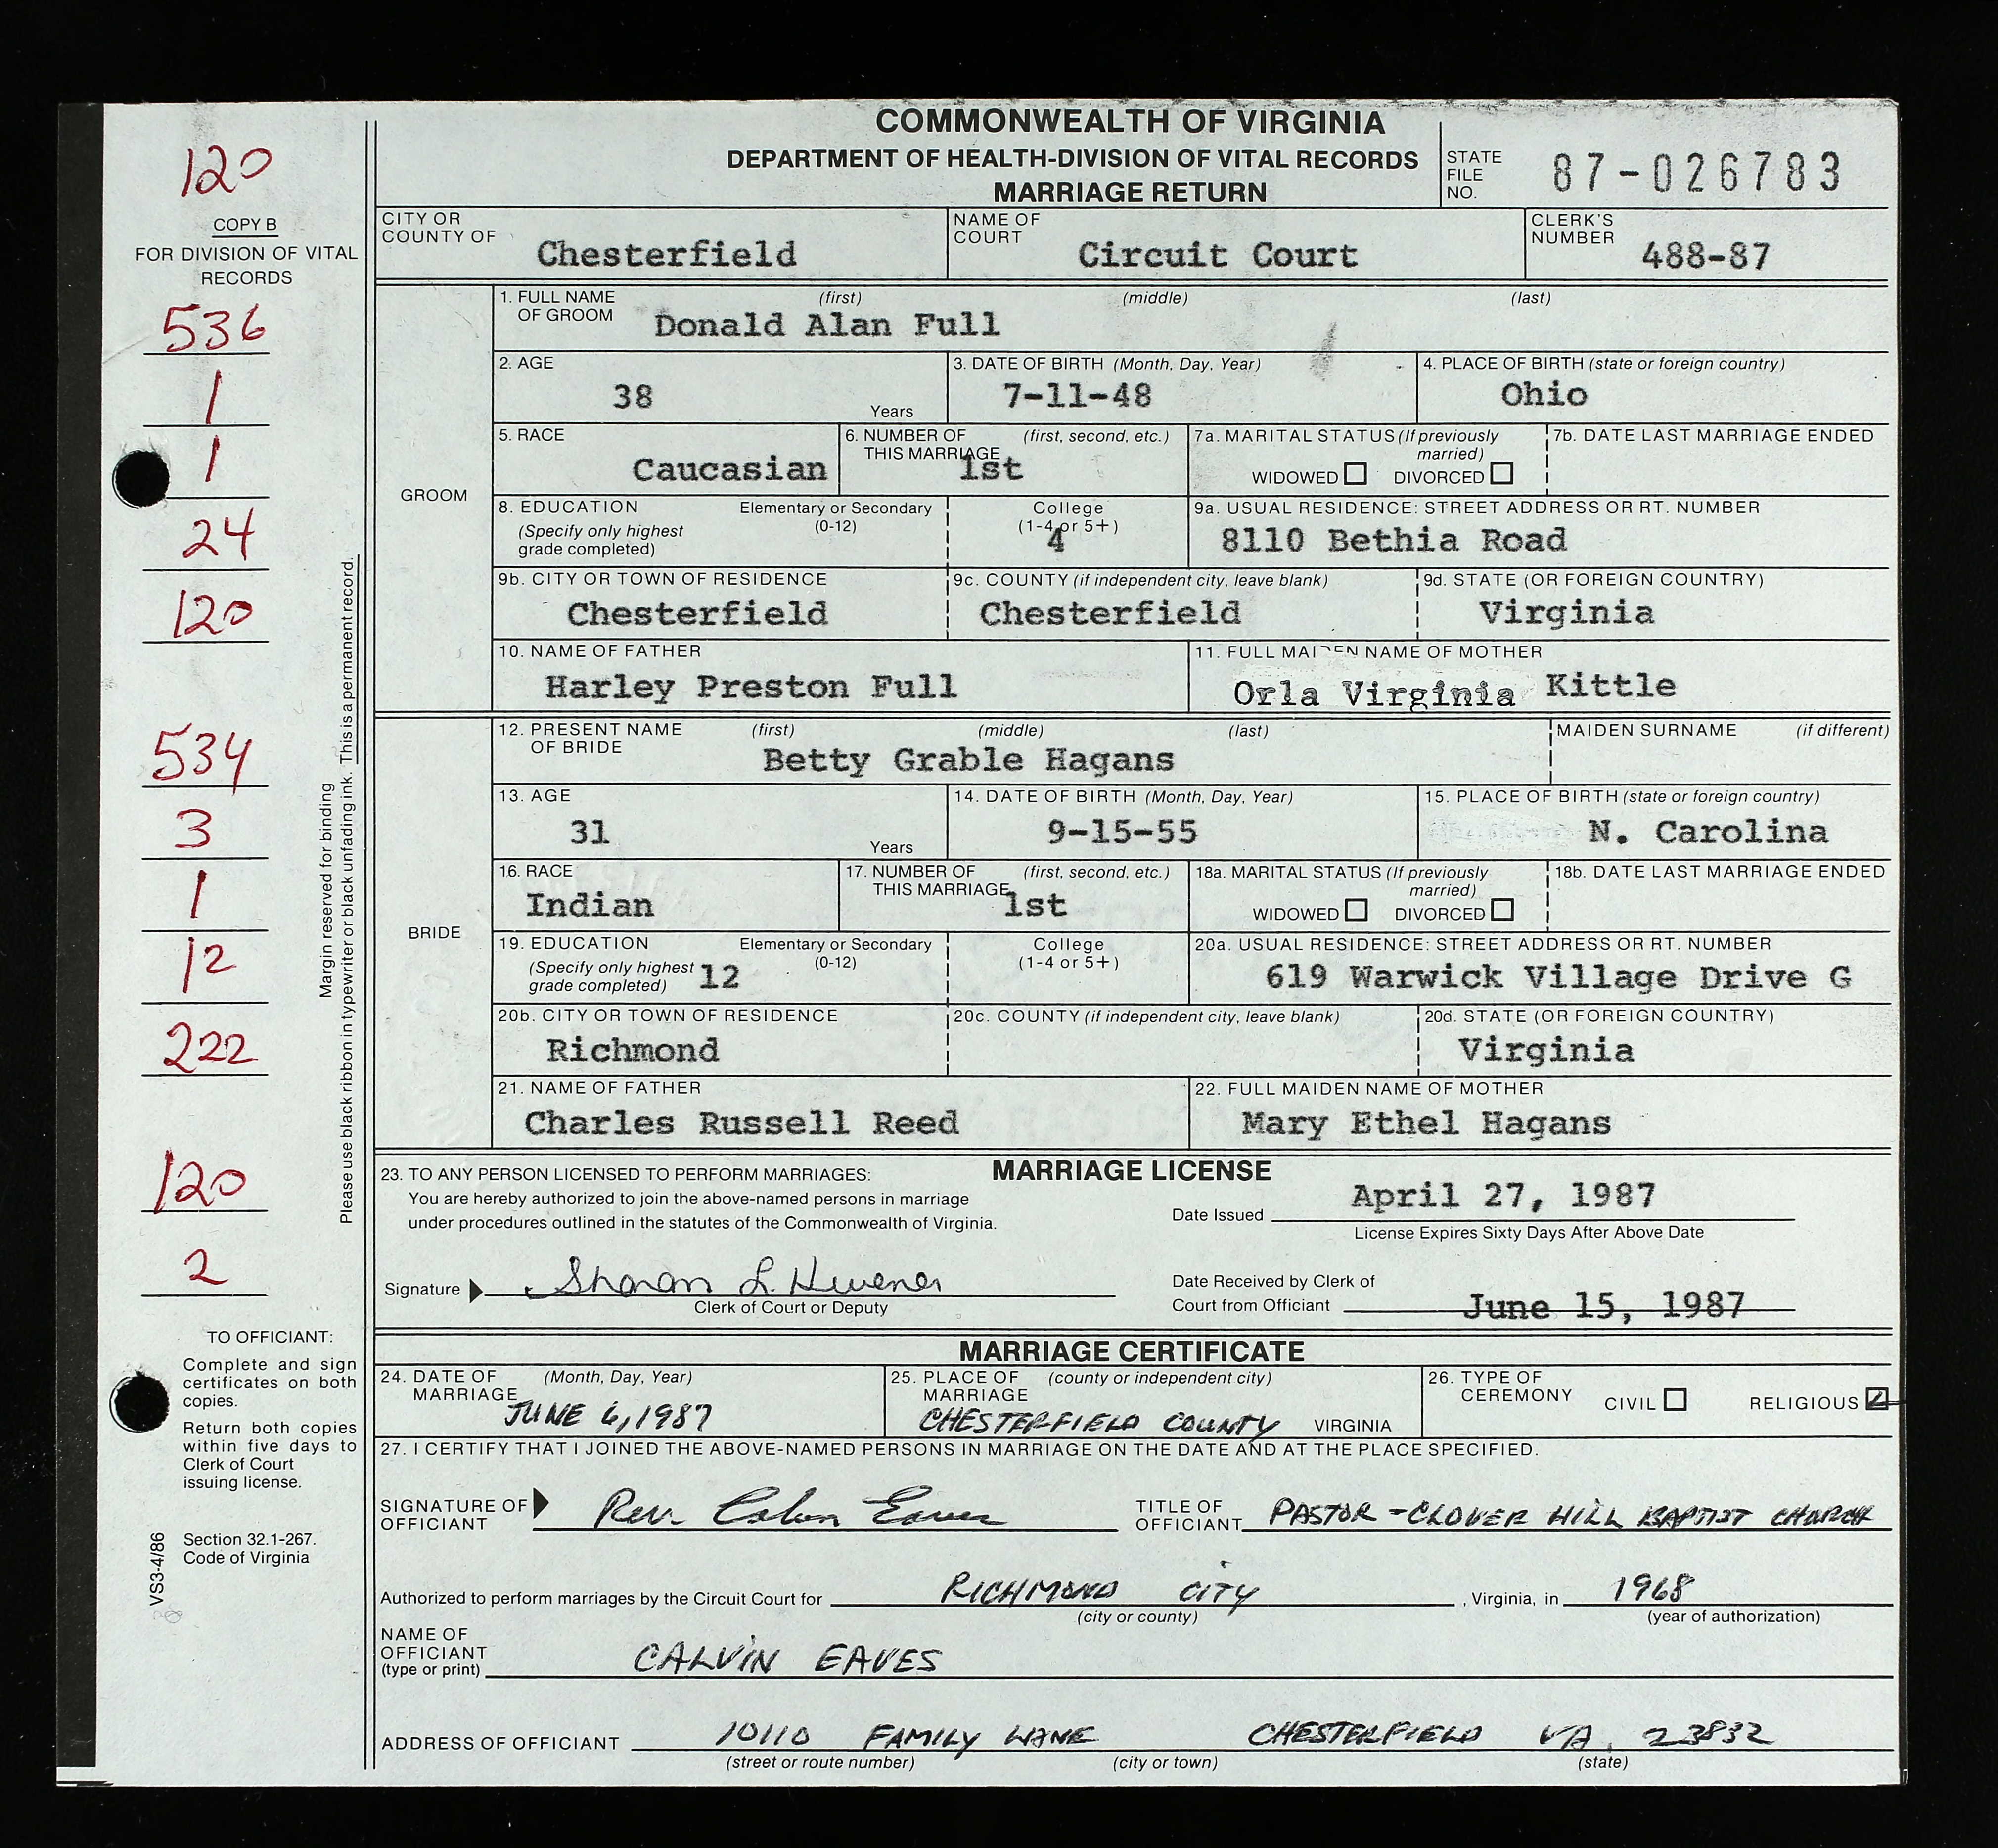 COMMONWEALTH OF VIRGINIA
DEPARTMENT OF HEALTH-DIVISION OF VITAL RECORDS
MARRIAGE RETURN
STATE FILE NO. 87-026783
120
COPY B
FOR DIVISION OF VITAL RECORDS
536
1
1
24
120
534
3
1
12
222
120
2
Margin reserved for binding
Please use black ribbon in typewriter or black unfading ink. This is a permanent record.
TO OFFICIANT:
Complete and sign
certificates on both
copies.
Return both copies
within five days to
Clerk of Court
issuing license.
Section 32.1-267.
Code of Virginia
VS3-4/86
CITY OR COUNTY OF Chesterfield
NAME OF COURT Circuit Court
CLERK'S NUMBER 488-87
GROOM
1. FULL NAME OF GROOM (first) (middle) (last)
Donald Alan Full
2. AGE 38 Years
3. DATE OF BIRTH (Month, Day, Year) 7-11-48
4. PLACE OF BIRTH (state or foreign country) Ohio
5. RACE Caucasian
6. NUMBER OF THIS MARRIAGE (first, second, etc.) 1st
7a. MARITAL STATUS (If previously married) WIDOWED DIVORCED
7b. DATE LAST MARRIAGE ENDED
8. EDUCATION (Specify only highest grade completed) Elementary or Secondary (0-12) College (1-4 or 5+) 4
9a. USUAL RESIDENCE: STREET ADDRESS OR RT. NUMBER 8110 Bethia Road
9b. CITY OR TOWN OF RESIDENCE Chesterfield
9c. COUNTY (if independent city, leave blank) Chesterfield
9d. STATE (OR FOREIGN COUNTRY) Virginia
10. NAME OF FATHER Harley Preston Full
11. FULL MAIDEN NAME OF MOTHER Orla Virginia Kittle
BRIDE
12. PRESENT NAME OF BRIDE (first) (middle) (last) Betty Grable Hagans
MAIDEN SURNAME (if different)
13. AGE 31 Years
14. DATE OF BIRTH (Month, Day, Year) 9-15-55
15. PLACE OF BIRTH (state or foreign country) N. Carolina
16. RACE Indian
17. NUMBER OF THIS MARRIAGE (first, second, etc.) 1st
18a. MARITAL STATUS (If previously married) WIDOWED DIVORCED
18b. DATE LAST MARRIAGE ENDED
19. EDUCATION (Specify only highest grade completed) 12 Elementary or Secondary (0-12) College (1-4 or 5+)
20a. USUAL RESIDENCE: STREET ADDRESS OR RT. NUMBER 619 Warwick Village Drive G
20b. CITY OR TOWN OF RESIDENCE Richmond
20c. COUNTY (if independent city, leave blank)
20d. STATE (OR FOREIGN COUNTRY) Virginia
21. NAME OF FATHER Charles Russell Reed
22. FULL MAIDEN NAME OF MOTHER Mary Ethel Hagans
MARRIAGE LICENSE
23. TO ANY PERSON LICENSED TO PERFORM MARRIAGES:
You are hereby authorized to join the above-named persons in marriage
under procedures outlined in the statutes of the Commonwealth of Virginia.
Date Issued April 27, 1987
License Expires Sixty Days After Above Date
Signature Sharon L.
Clerk of Court or Deputy
Date Received by Clerk of
Court from Officiant June 15, 1987
MARRIAGE CERTIFICATE
24. DATE OF MARRIAGE (Month, Day, Year) JUNE 6, 1987
25. PLACE OF MARRIAGE (county or independent city) CHESTERFIELD COUNTY VIRGINIA
26. TYPE OF CEREMONY CIVIL RELIGIOUS
27. I CERTIFY THAT I JOINED THE ABOVE-NAMED PERSONS IN MARRIAGE ON THE DATE AND AT THE PLACE SPECIFIED.
SIGNATURE OF OFFICIANT Rev. Calvin Eaves
TITLE OF OFFICIANT PASTOR - CLOVER HILL BAPTIST CHURCH
Authorized to perform marriages by the Circuit Court for RICHMOND CITY, Virginia, in 1968
(city or county) (year of authorization)
NAME OF OFFICIANT (type or print) CALVIN EAVES
ADDRESS OF OFFICIANT 10110 FAMILY LANE CHESTERFIELD VA. 23832
(street or route number) (city or town) (state)